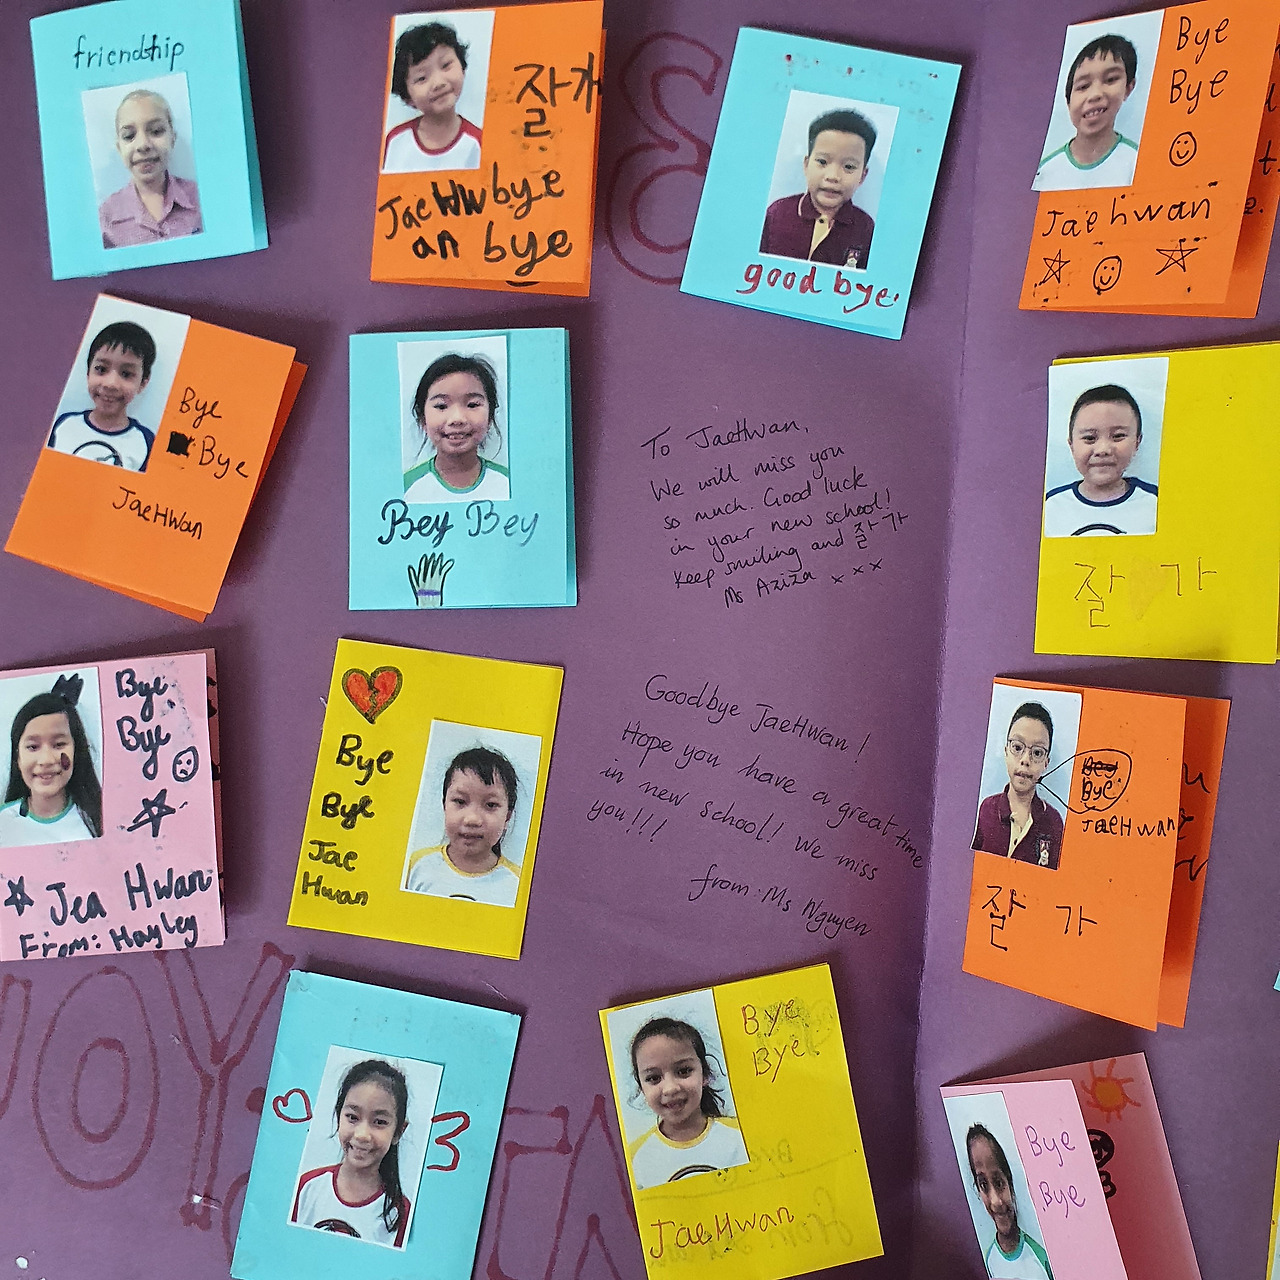 friendship
잘가
JaeHwan bye
bye
good bye
Bye
Bye
Jaehwan
Bye
Bye
JaeHWan
Bey Bey
To JaeHwan,
We will miss you
so much. Good luck
in your new school!
Keep smiling and 잘 가
Ms Aziza xxx
잘 가
Bye
Bye
Jea Hwan
From: Hayley
Bye
Bye
Jae
Hwan
Goodbye JaeHwan!
Hope you have a great time
in new school! We miss
you!!!
from: Ms Nguyen
Bye
JaeHwan
잘 가
3
Bye
Bye
JaeHwan
Bye
Bye